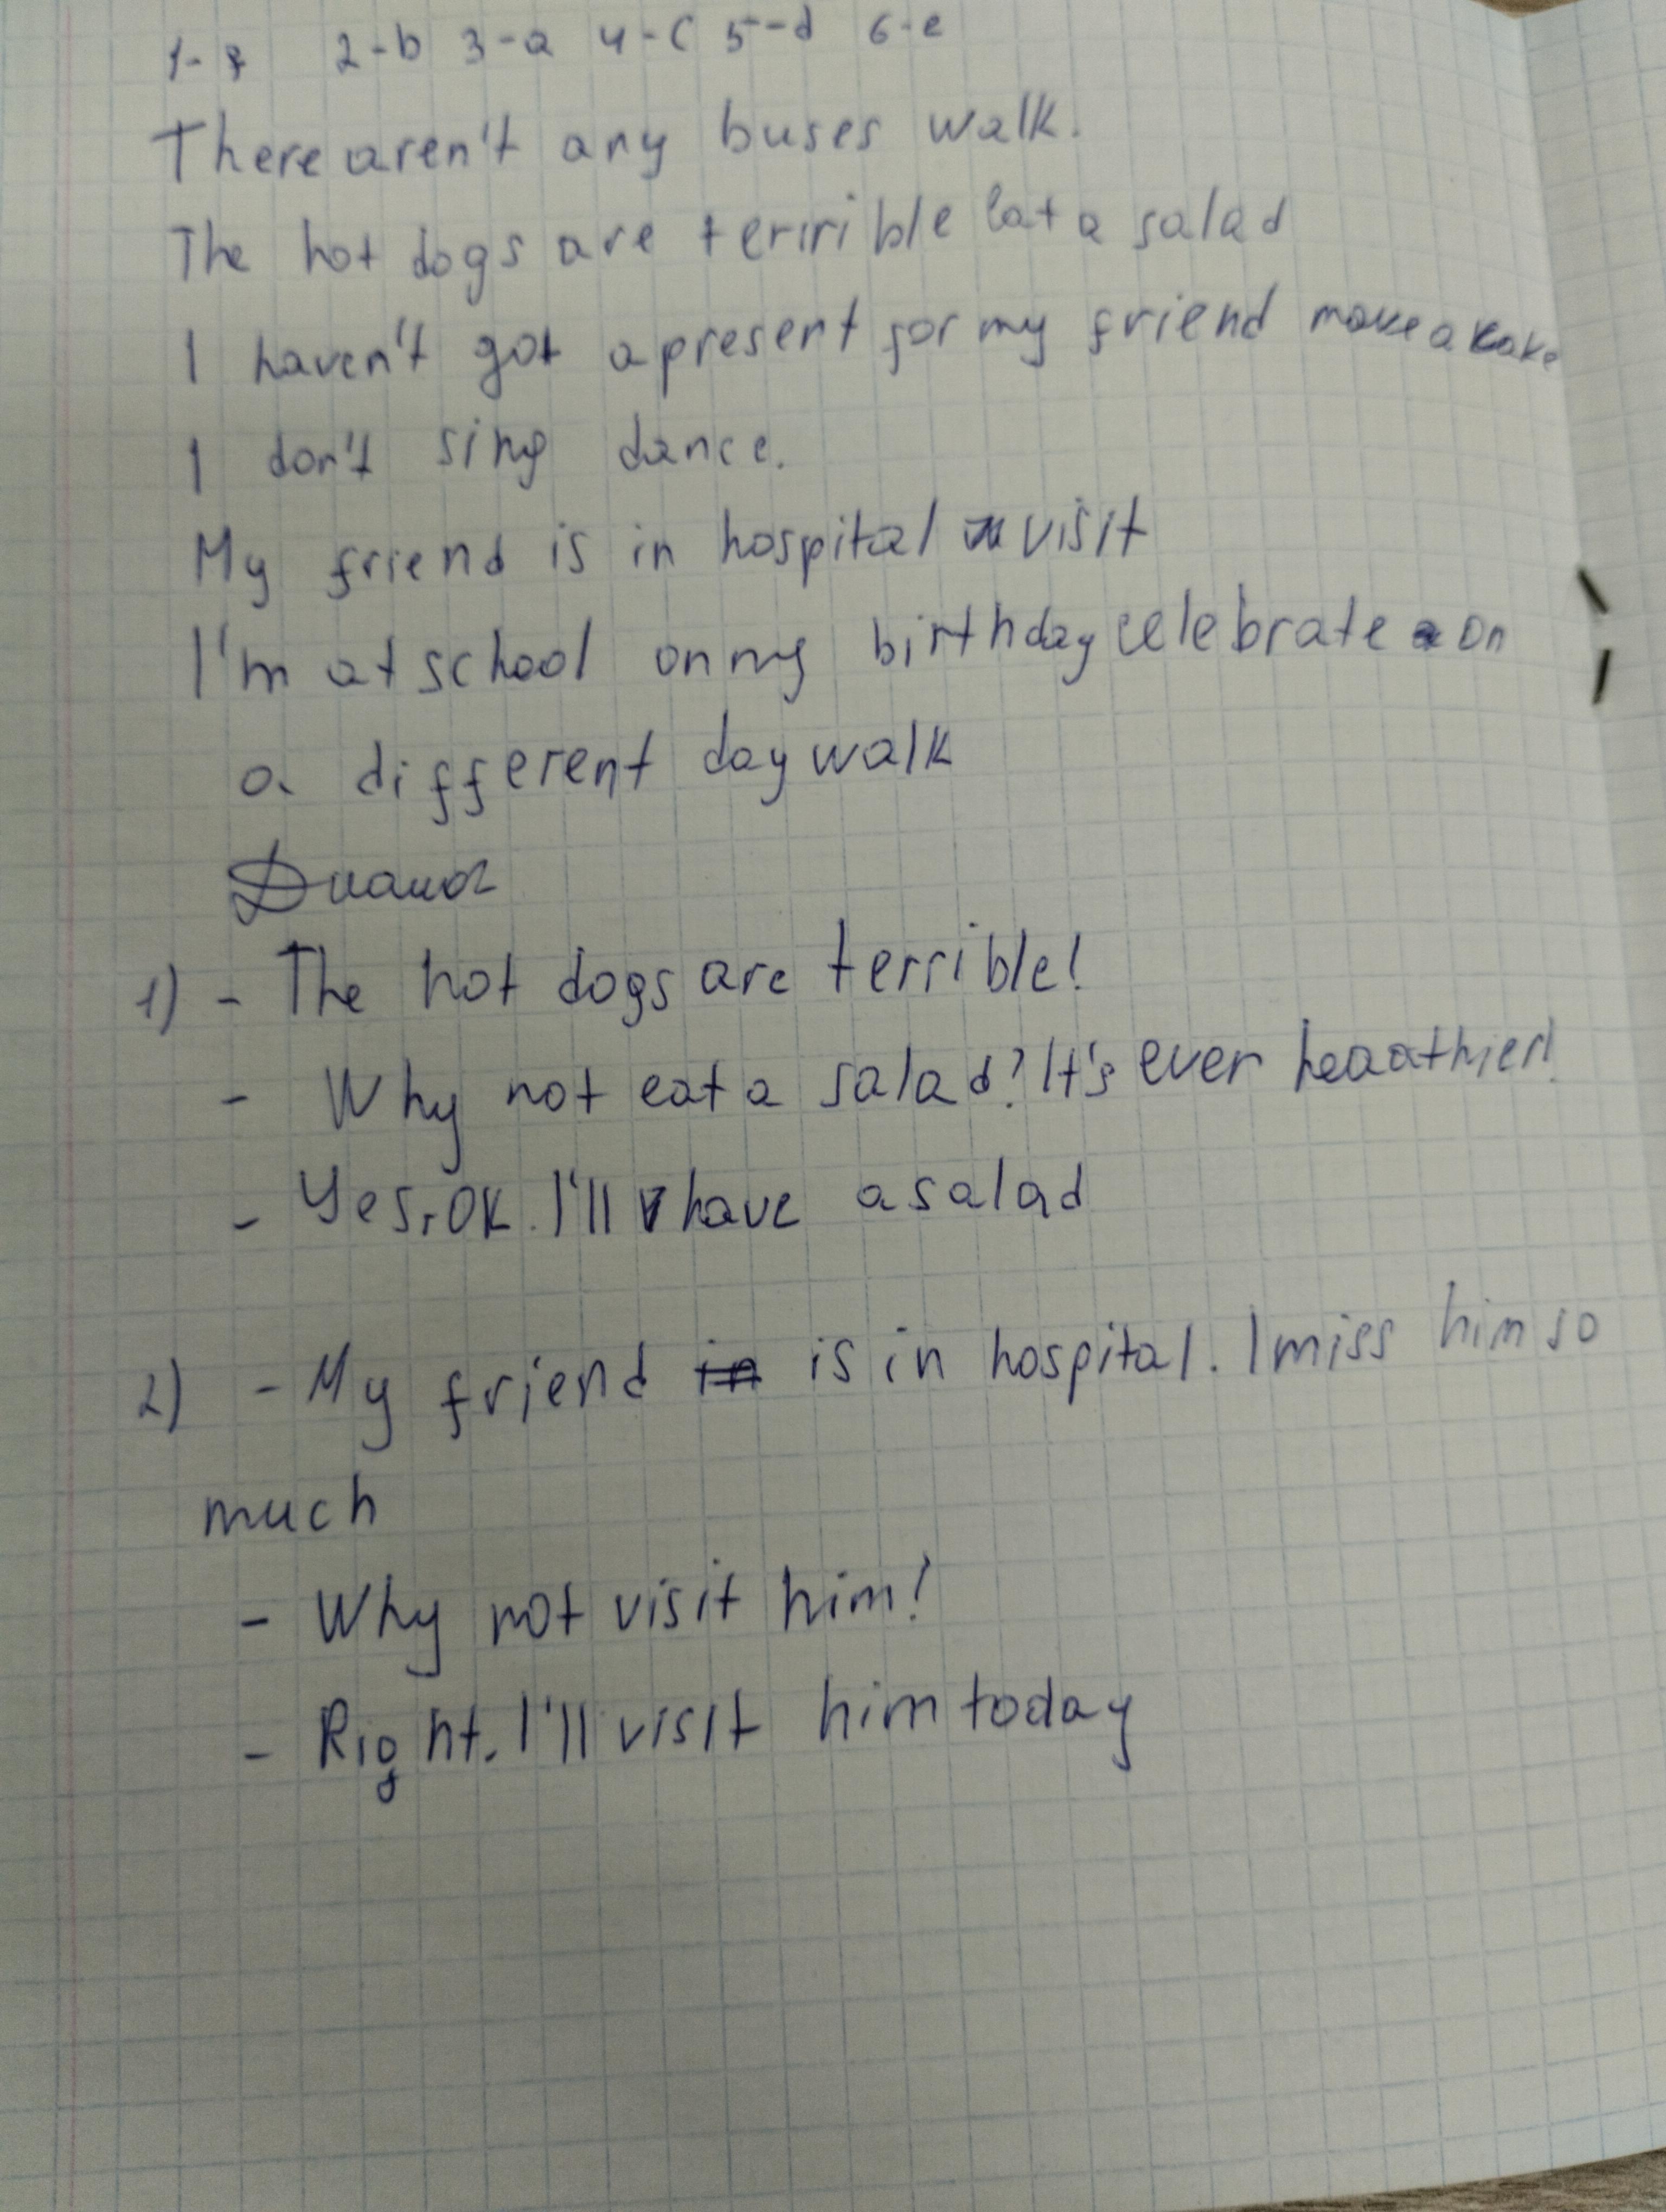 1-f 2-b 3-a 4-c 5-d 6-e
There aren't any buses walk.
The hot dogs are terrible eat a salad
I haven't got a present for my friend make a cake
I don't sing dance.
My friend is in hospital visit
I'm at school on my birthday celebrate on
a different day walk
1) - The hot dogs are terrible!
- Why not eat a salad? It's ever heaathier!
- Yes, OK. I'll have a salad
2) - My friend is in hospital. I miss him so
much
- Why not visit him!
- Right. I'll visit him today